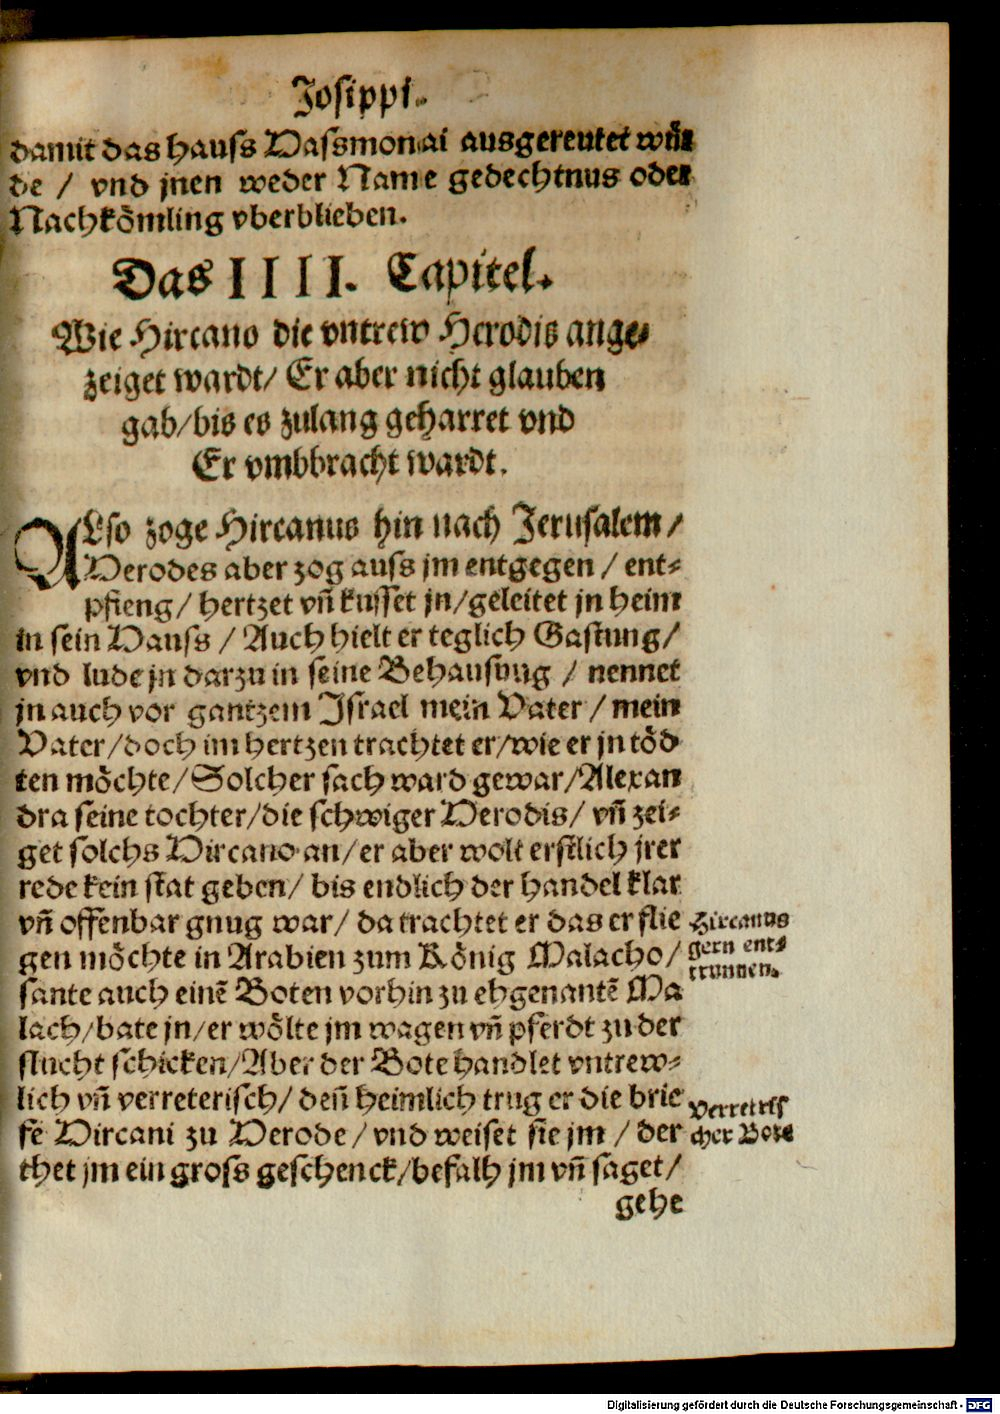 Josippi.
damit das hauss Hassmonai ausgereutet wür
de / vnd jnen weder Name gedechtnus oder
Nachkömling vberblieben.
Das IIII. Capitel.
Wie Hircano die vntrew Herodis ange-
zeiget wardt/ Er aber nicht glauben
gab/bis es zulang geharret vnd
Er vmbbracht wardt.
ALso zoge Hircanus hin nach Jerusalem /
Herodes aber zog auss jm entgegen / ent-
pfieng/ hertzet vñ kusset jn/geleitet jn heim
in sein Hauss / Auch hielt er teglich Gastung/
vnd lude jn darzu in seine Behausung / nennet
jn auch vor gantzem Israel mein Vater / mein
Vater/doch im hertzen trachtet er/wie er jn töd
ten möchte/Solcher sach ward gewar/Alexan
dra seine tochter/die schwiger Herodis/ vñ zei-
get solchs Hircano an/er aber wolt erstlich jrer
rede kein stat geben/ bis endlich der handel klar
vñ offenbar gnug war/ da trachtet er das er flie
gen möchte in Arabien zum König Malacho/
sante auch einē Boten vorhin zu ehgenantē Ma
lach/bate jn/er wölte jm wagen vñ pferdt zu der
flucht schicken/Aber der Bote handlet vntrew-
lich vñ verreterisch/ deñ heimlich trug er die brie
fe Hircani zu Herode/ vnd weiset sie jm / der
thet jm ein gross geschenck/befalh jm vñ saget/
gehe
Hircanus
gern ent-
trunnen.
Verretris
cher Bote
Digitalisierung gefördert durch die Deutsche Forschungsgemeinschaft - DFG